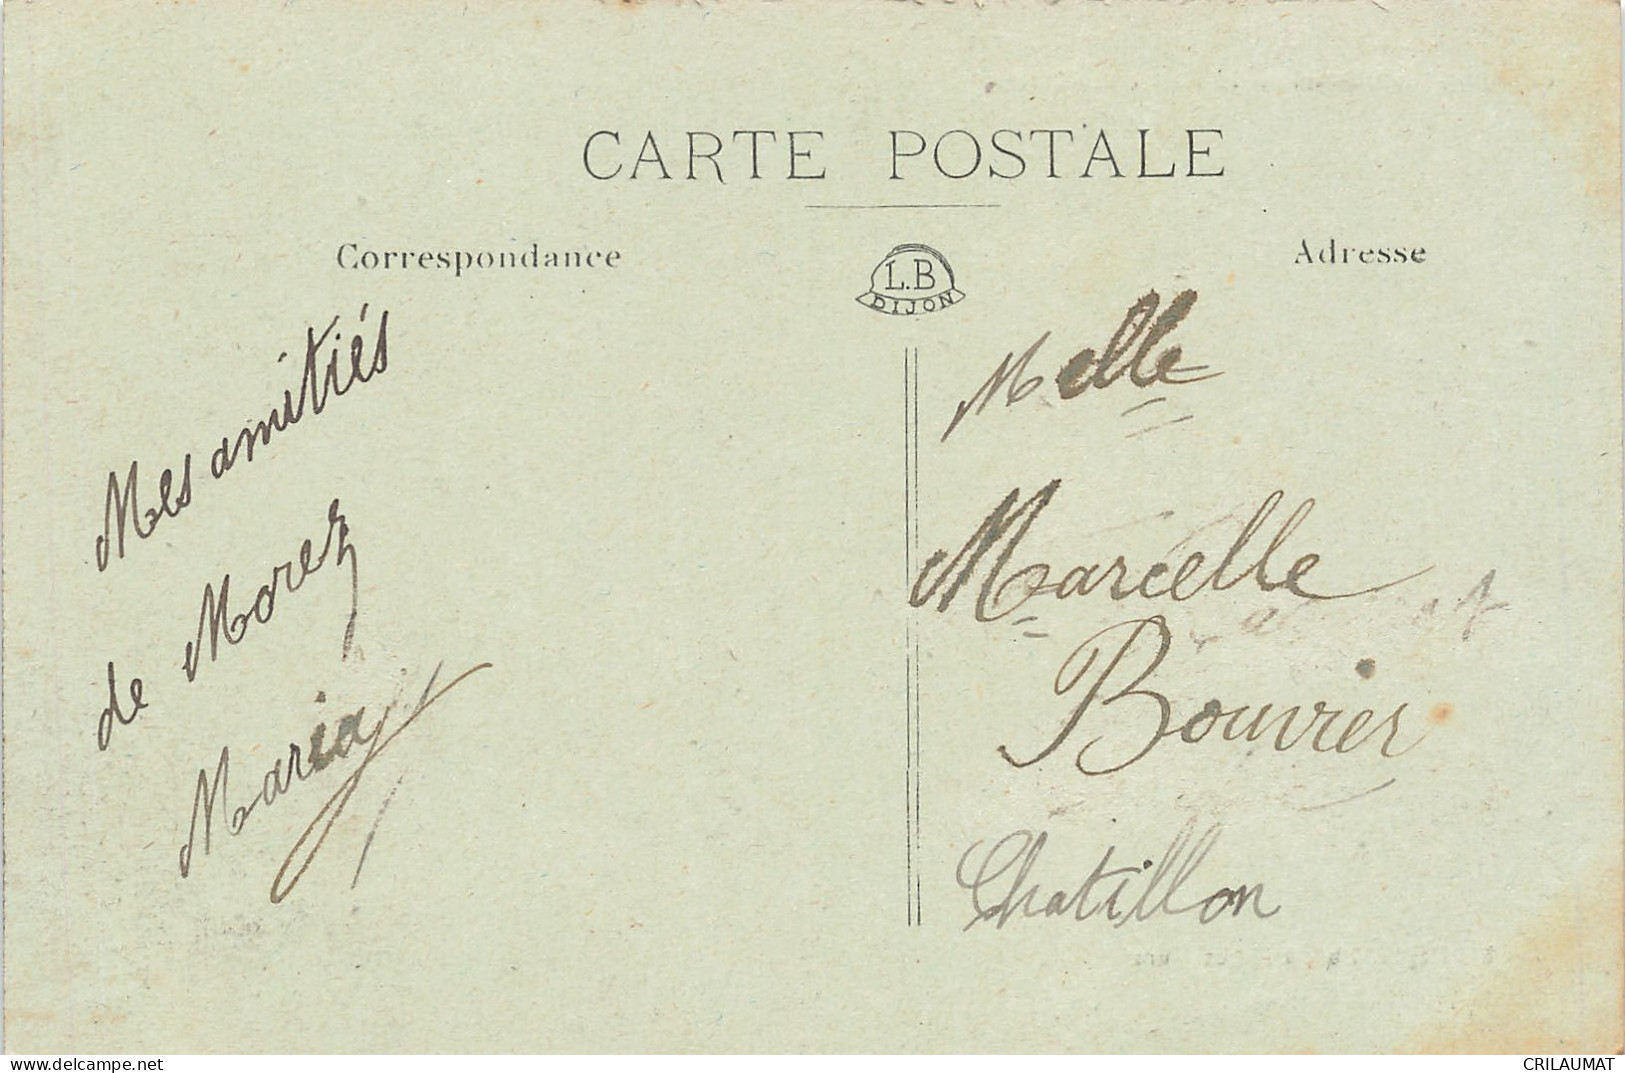 CARTE POSTALE
Correspondance
Adresse
L.B
DIJON
Mes amitiés
de Morez
Maria
Melle
Marcelle
Bouvier
Chatillon
www.delcampe.net
CRILAUMAT